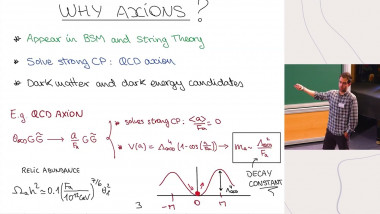 WHY AXIONS ?
* Appear in BSM and String Theory
* Solve strong CP: QCD axion
* Dark matter and dark energy candidates
E.g QCD AXION
θ_QCD G G̃ → a/F_a G G̃
* solves strong CP: <a>/F_a = 0
* V(a) = Λ⁴_QCD (1 - cos(a/F_a)) → m_a ~ Λ²_QCD/F_a
RELIC ABUNDANCE
Ω_a h² ≃ 0.1 (F_a/10¹² GeV)^7/6 θ_i²
DECAY
CONSTANT
Λ⁴_QCD
-π 0 π
3